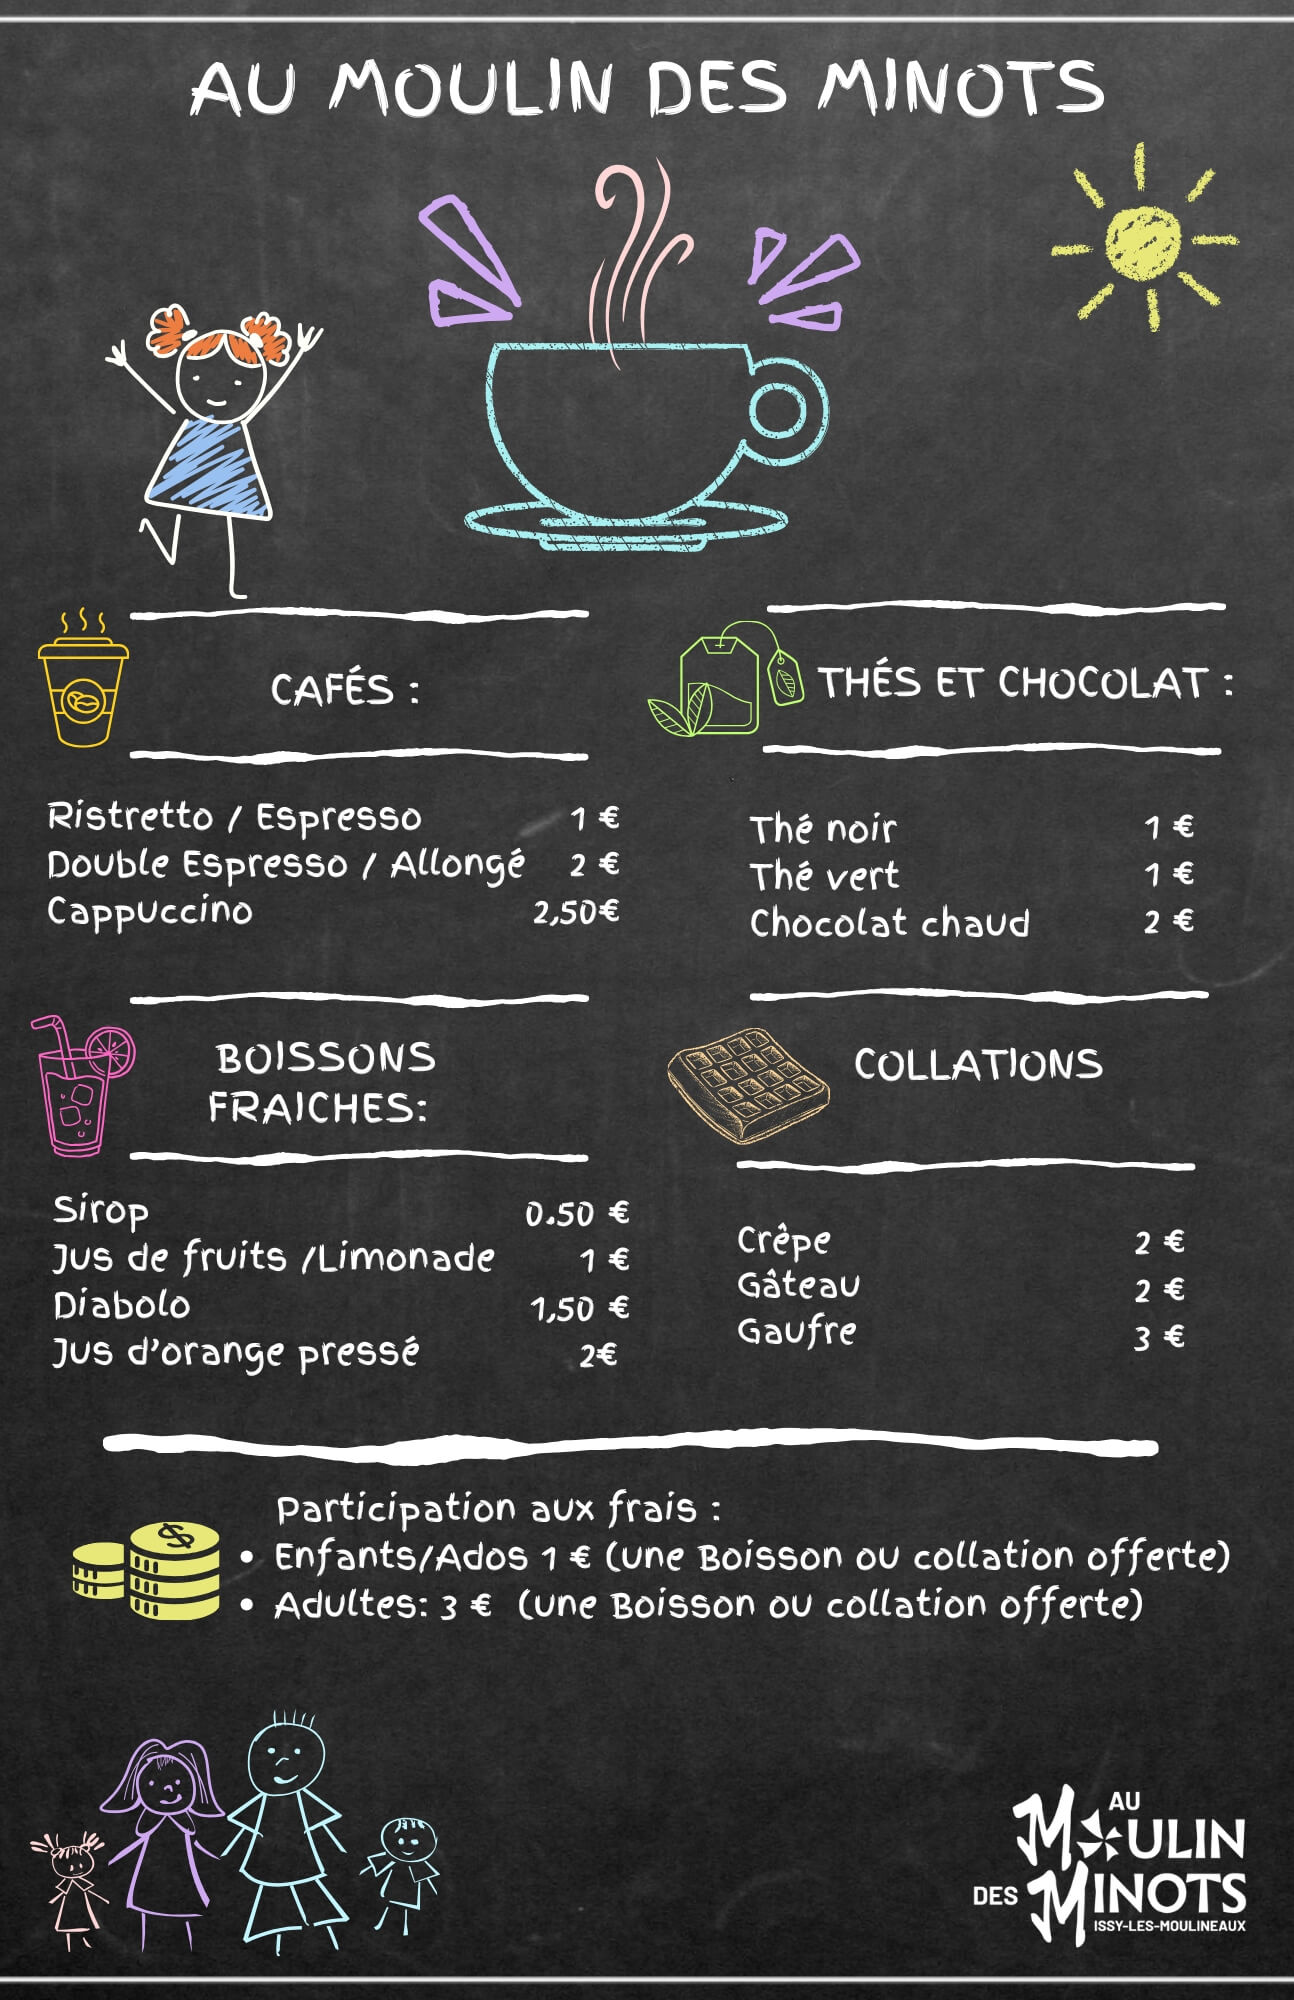 AU MOULIN DES MINOTS
CAFÉS :
Ristretto / Espresso 1 €
Double Espresso / Allongé 2 €
Cappuccino 2,50€
THÉS ET CHOCOLAT :
Thé noir 1 €
Thé vert 1 €
Chocolat chaud 2 €
BOISSONS
FRAICHES:
Sirop 0.50 €
Jus de fruits /Limonade 1 €
Diabolo 1,50 €
Jus d'orange pressé 2€
COLLATIONS
Crêpe 2 €
Gâteau 2 €
Gaufre 3 €
Participation aux frais :
• Enfants/Ados 1 € (une Boisson ou collation offerte)
• Adultes: 3 € (une Boisson ou collation offerte)
AU
MOULIN
DES MINOTS
ISSY-LES-MOULINEAUX